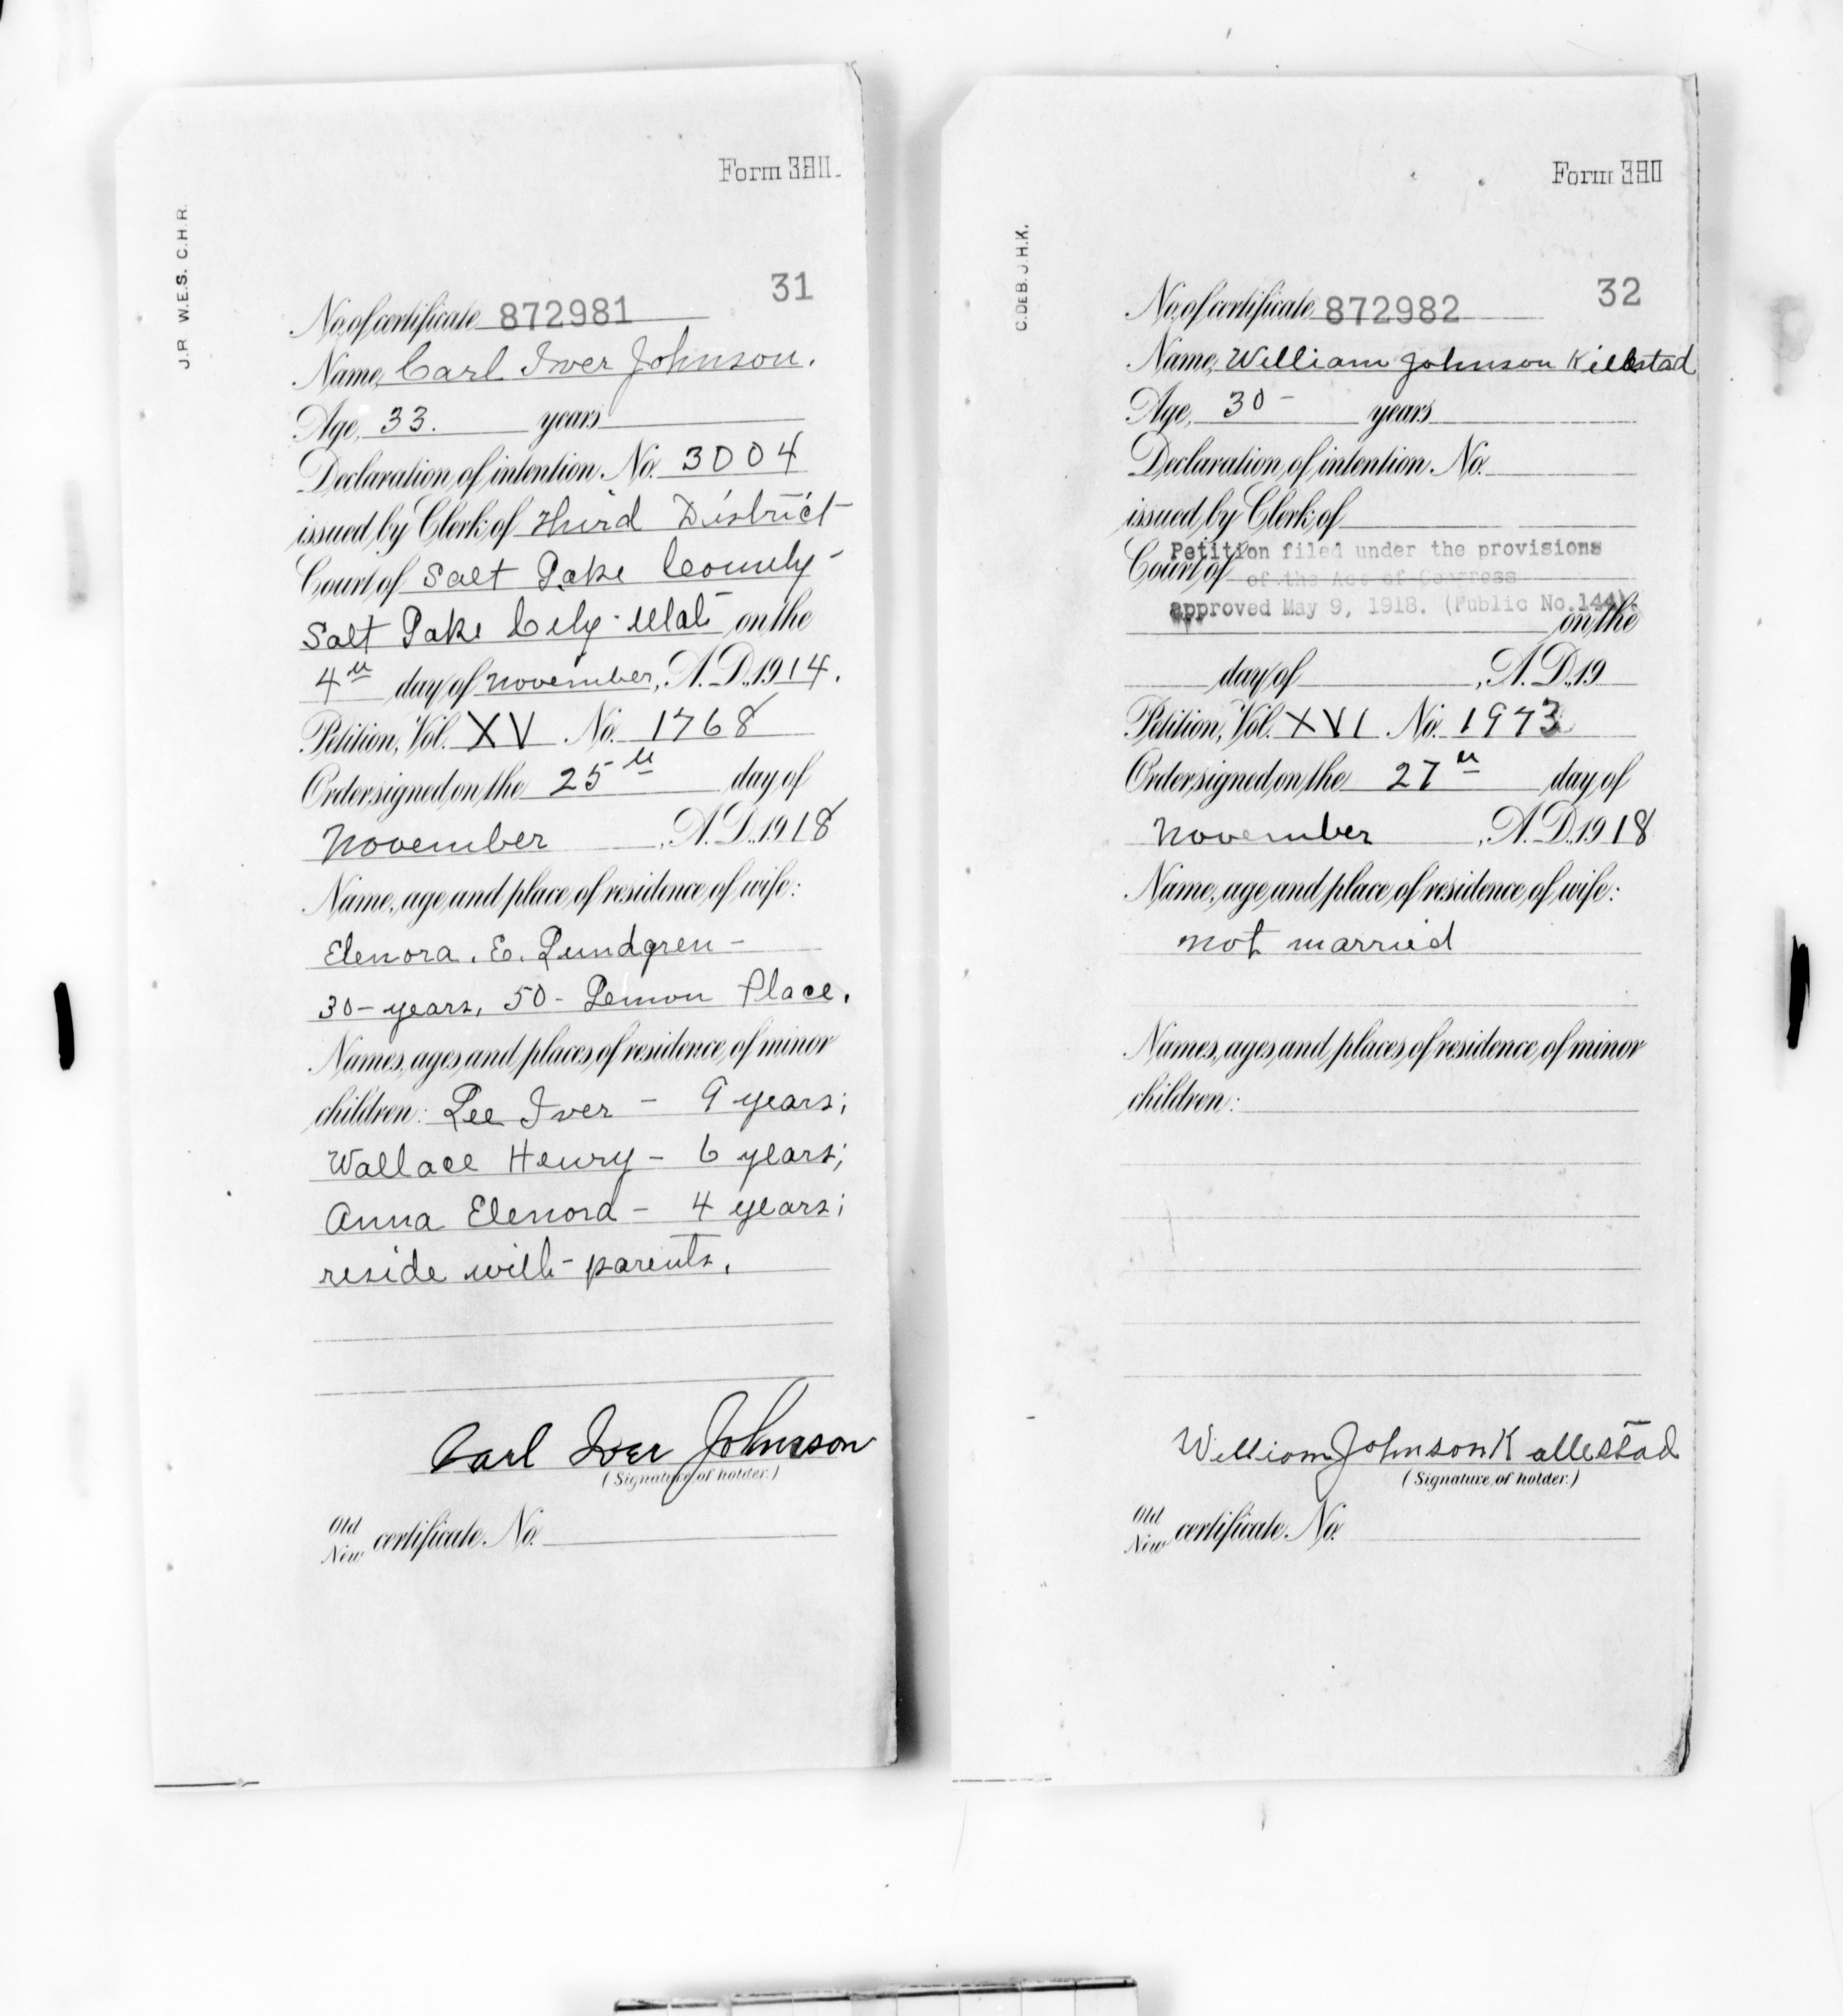 J.R. W.E.S. C.H.R.
Form 380.
31
No. of certificate 872981
Name, Carl Iver Johnson.
Age, 33. years
Declaration of intention No. 3004
issued by Clerk of Third District
Court of Salt Lake County
Salt Lake City Utah on the
4th day of November, A.D., 1914.
Petition, Vol. XV No. 1768
Order signed on the 25th day of
November, A.D., 1918
Name, age and place of residence of wife:
Elenora. E. Lundgren -
30 - years, 50 - Lemon Place.
Names, ages and places of residence of minor
children: Lee Iver - 9 years;
Wallace Henry - 6 years;
Anna Elenora - 4 years;
reside with parents.
Carl Iver Johnson
(Signature of holder.)
Old
New certificate No.
C.DEB. J.H.K.
Form 380
32
No. of certificate 872982
Name, William Johnson
Age, 30 - years
Declaration of intention No.
issued by Clerk of
Petition filed under the provisions
Court of of the Act of Congress
approved May 9, 1918. (Public No. 144).
on the
day of , A.D., 19
Petition, Vol. XVI No. 1973
Order signed on the 27th day of
November, A.D., 1918
Name, age and place of residence of wife:
not married
Names, ages and places of residence of minor
children:
William Johnson Kallestad
(Signature of holder.)
Old
New certificate No.